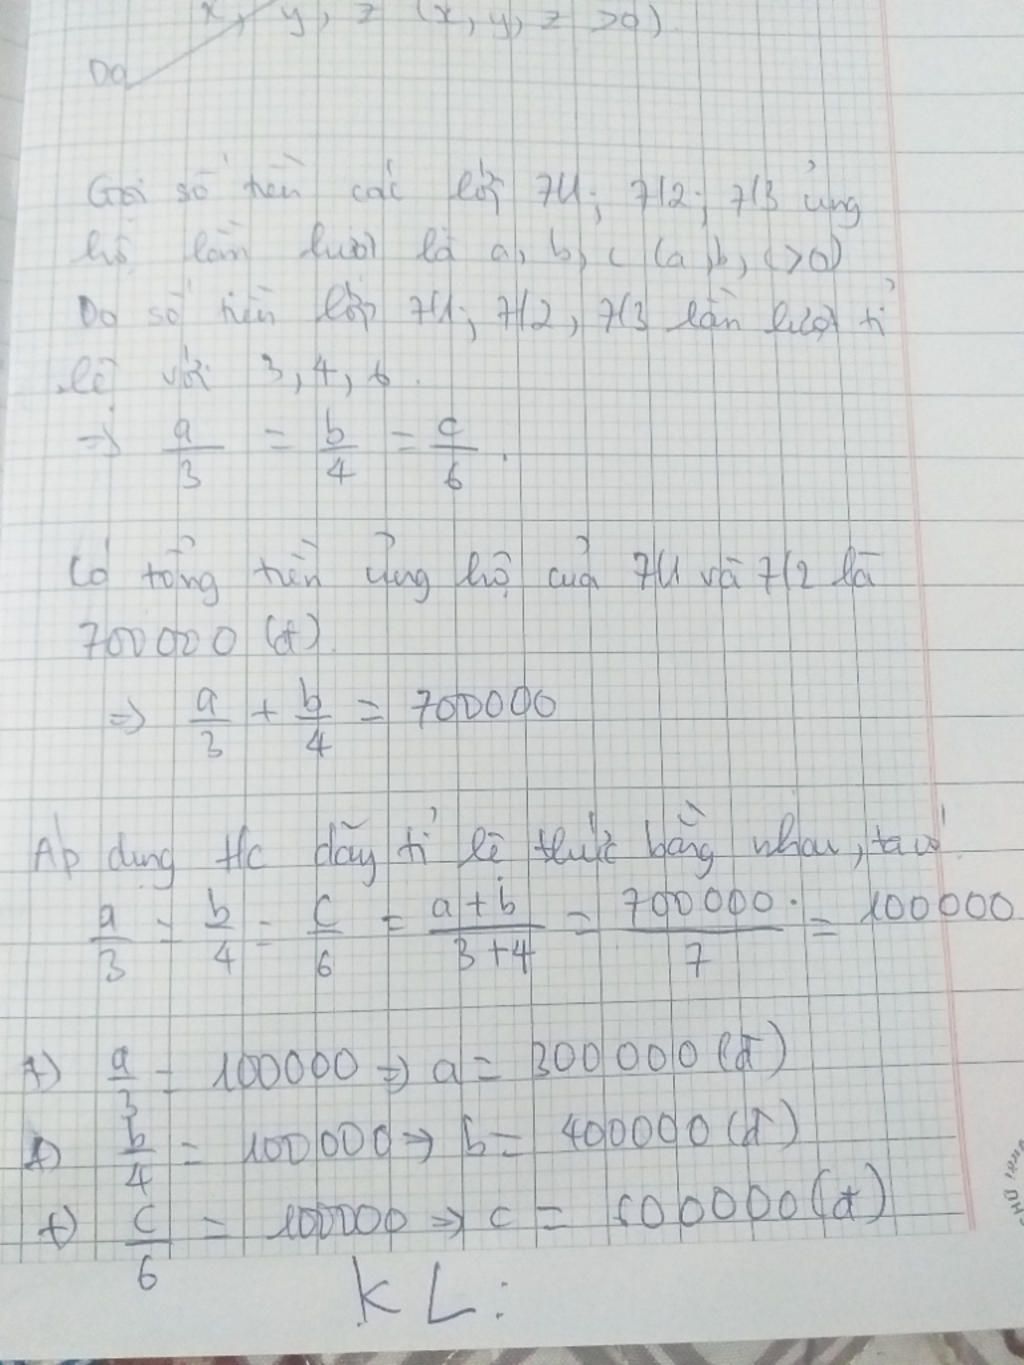 x, y, z (x, y, z >0)
Do
Gọi số tiền các lớp 7/1; 7/2; 7/3 ủng
hộ lần lượt là a, b, c (a, b, c >0)
Do số tiền lớp 7/1; 7/2, 7/3 lần lượt tỉ
lệ với 3, 4, 6.
=> a/3 = b/4 = c/6.
Có tổng tiền ủng hộ của 7/1 và 7/2 là
700000 (đ)
=> a/3 + b/4 = 700000
Áp dụng t/c dãy tỉ lệ thức bằng nhau, ta có
a/3 = b/4 = c/6 = a+b/3+4 = 700000/7 = 100000
+) a/3 = 100000 => a = 300000 (đ)
+) b/4 = 100000 => b = 400000 (đ)
+) c/6 = 100000 => c = 600000 (đ)
KL: